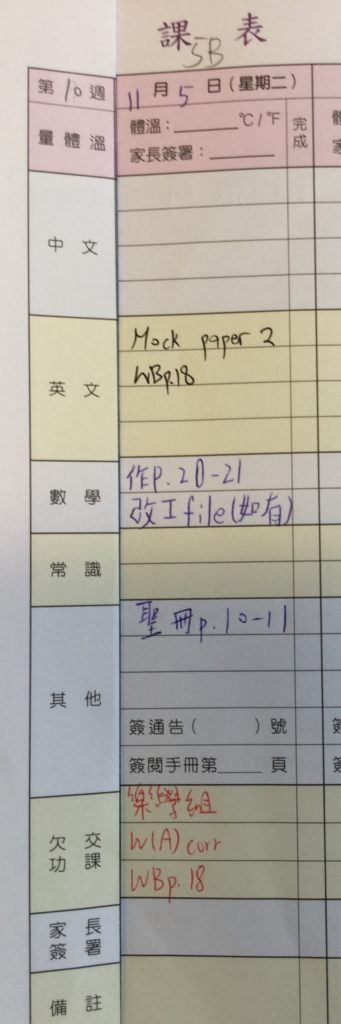 課表
5B
第10週
11月5日(星期二)
量體溫
體溫：______°C/°F
完成
家長簽署：______
中文
英文
Mock paper 2
WBp.18
數學
作p.20-21
改工file(如有)
常識
其他
聖冊p.10-11
簽通告( )號
簽閱手冊第____頁
欠交功課
樂學組
W(A) corr
WBp.18
家長簽署
備註